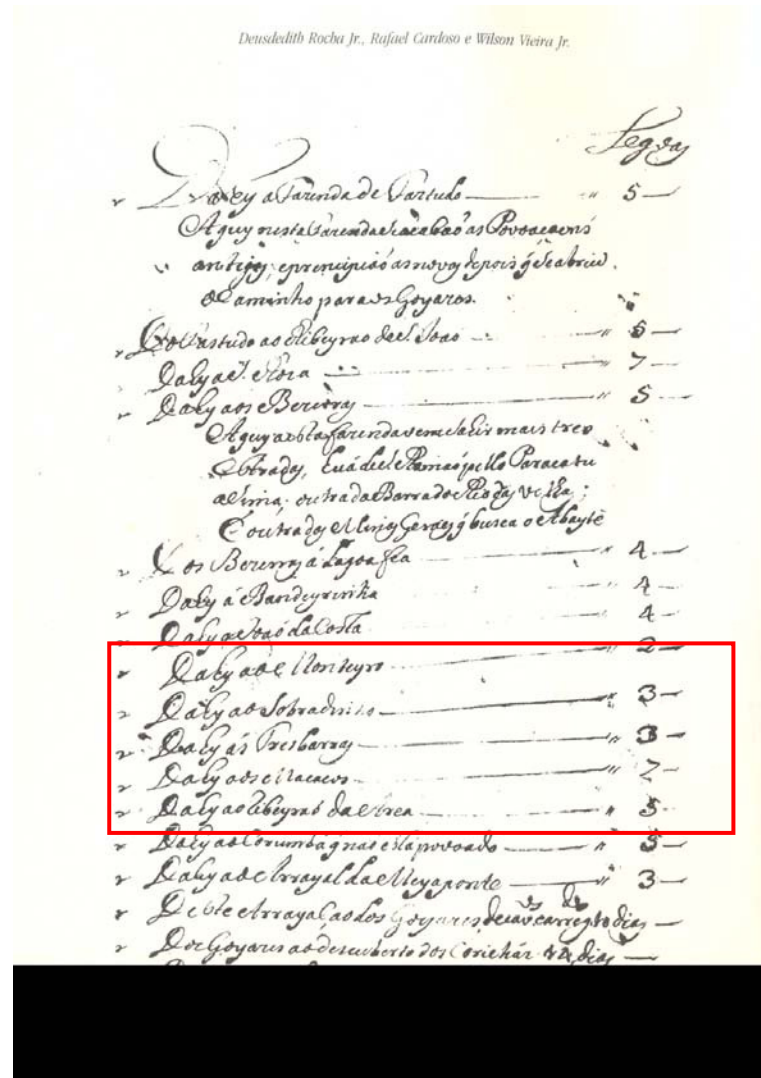 Deusdedith Rocha Jr., Rafael Cardoso e Wilson Vieira Jr.
Legoas
Daly a Fazenda de 5
Aquy nesta fazenda se acabaõ as Povoacoens
antigas, e principiaõ as novas depois q̃ se abriu
o Caminho para os Goyazes.
Do ao Ribeyrao de S. Joao 5
Daly a S. Roza 7
Daly aos Bezerras 5
Aquy a esta fazenda vem sahir mais tres
Estradas, pello Paracatu
asima; outra da Barra do Rio das Velhas;
E outra das Minas Geraes q̃ busca o Abayté
Dos Bezerras á Lagoa fea 4
Daly á Bandeyrinha 4
Daly a Joaõ da Costa 4
Daly ao Monteyro 2
Daly ao Sobradinho 3
Daly ás Tres barras 3
Daly aos Macacos 7
Daly ao Ribeyraõ da Area 5
Daly ao Corumbá q̃ naõ está povoado 5
Daly ao Arrayal da Meyaponte 3
Deste Arrayal aos Goyazes dias
Dos Goyazes ao descuberto dos dias